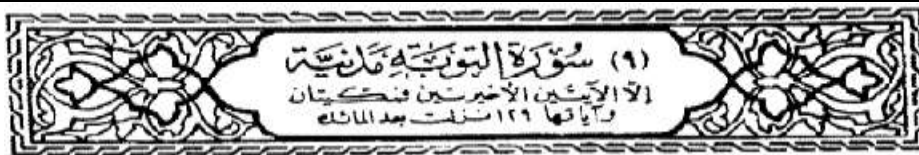 (٩) سُورَة التَّوْبَةِ مَدَنِيَّة
إلا الآيتين الأخيرتين فمكيتان
وآياتها ١٢٩ نزلت بعد المائدة